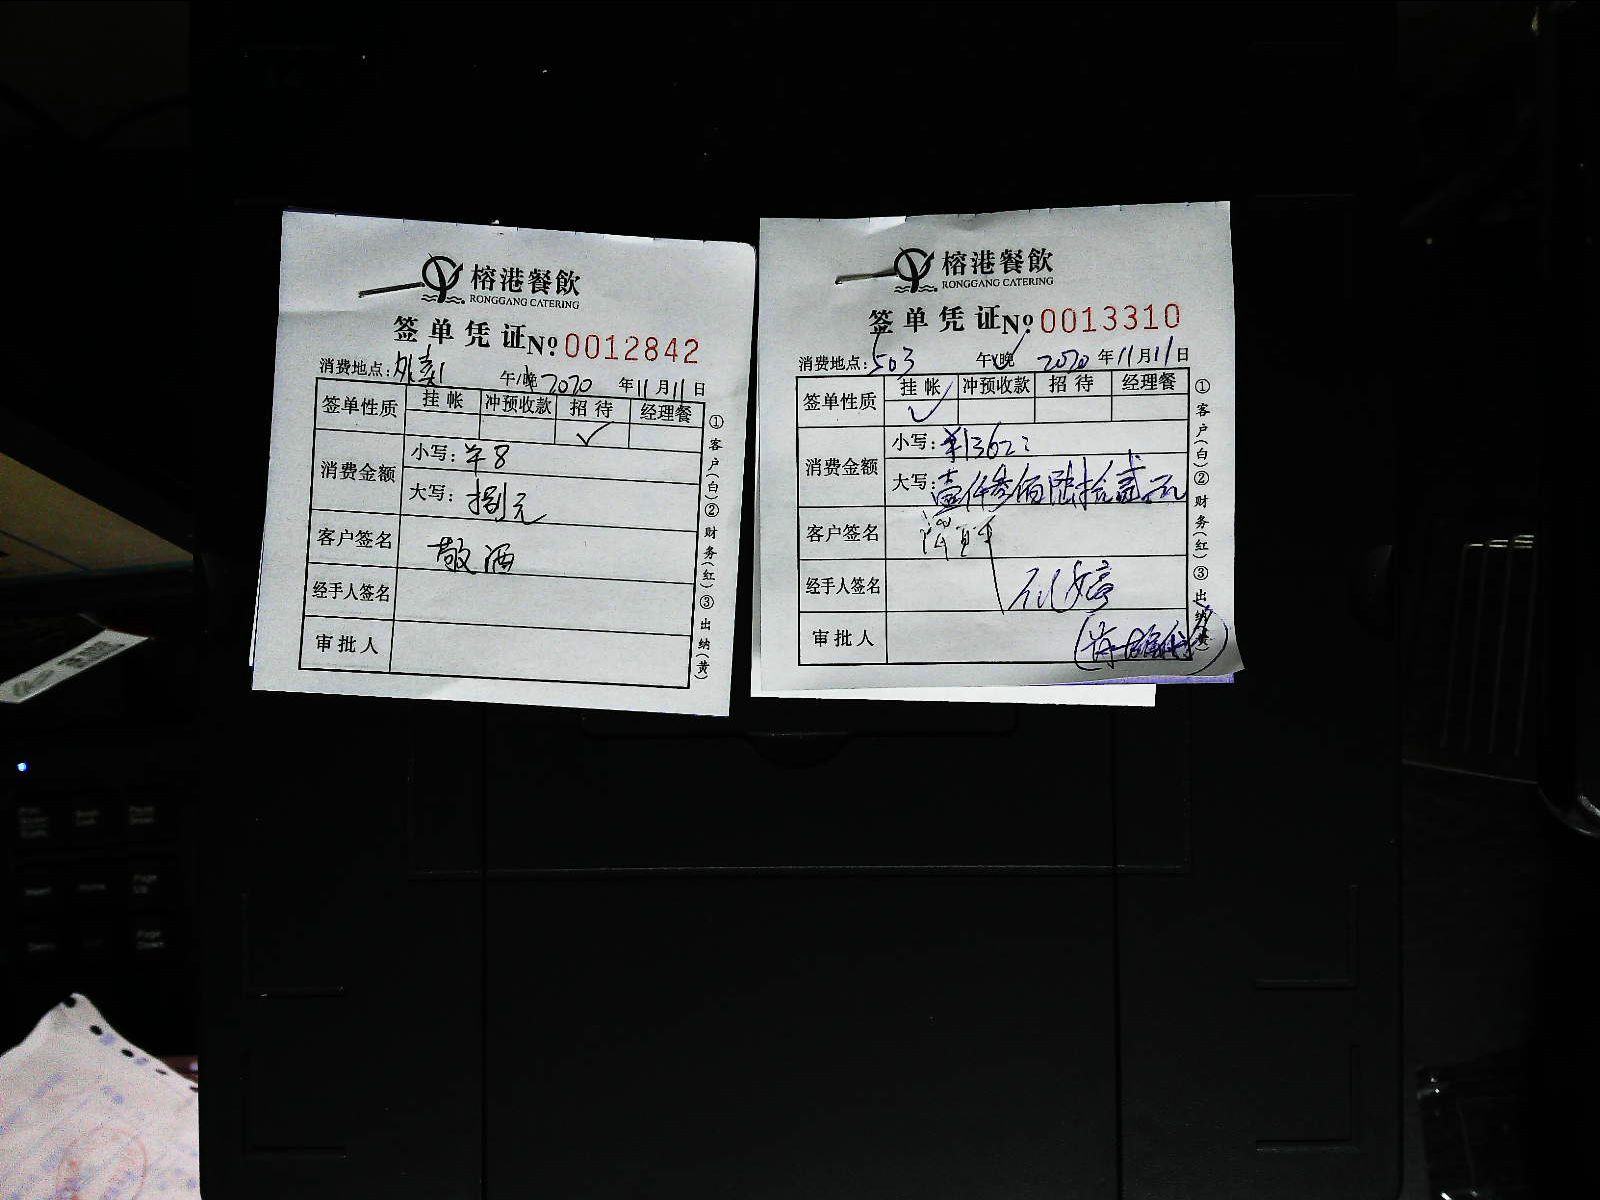 榕港餐飲
RONGGANG CATERING
签单凭证 No 0012842
消费地点：外卖1 午/晚 2020 年 11 月 11 日
签单性质 挂帐 冲预收款 招待 经理餐
✓
消费金额 小写：¥8
大写：捌元
客户签名 敬酒
经手人签名
审批人
①客户(白)②财务(红)③出纳(黄)
榕港餐飲
RONGGANG CATERING
签单凭证 No 0013310
消费地点：503 午/晚 2020 年 11 月 11 日
签单性质 挂帐 冲预收款 招待 经理餐
✓
消费金额 小写：¥1362
大写：壹仟叁佰陆拾贰元
客户签名
经手人签名
审批人
①客户(白)②财务(红)③出纳(黄)
Insert Home Page Up
Page Down